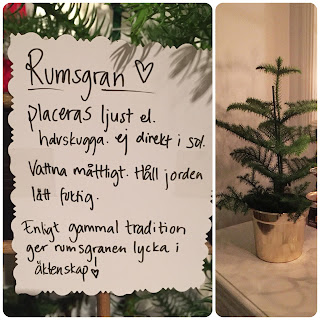 Rumsgran ♡
placeras ljust el.
halvskugga. ej direkt i sol.
Vattna måttligt. Håll jorden
lätt fuktig.
Enligt gammal tradition
ger rumsgranen lycka i
äktenskap!